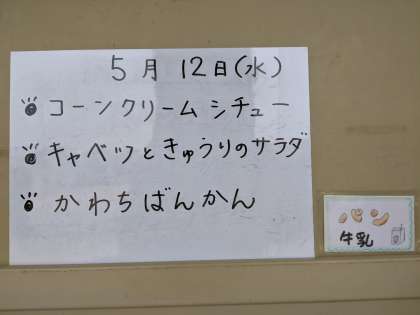 5月 12日(水)
コーンクリームシチュー
キャベツときゅうりのサラダ
かわちばんかん
パン
牛乳